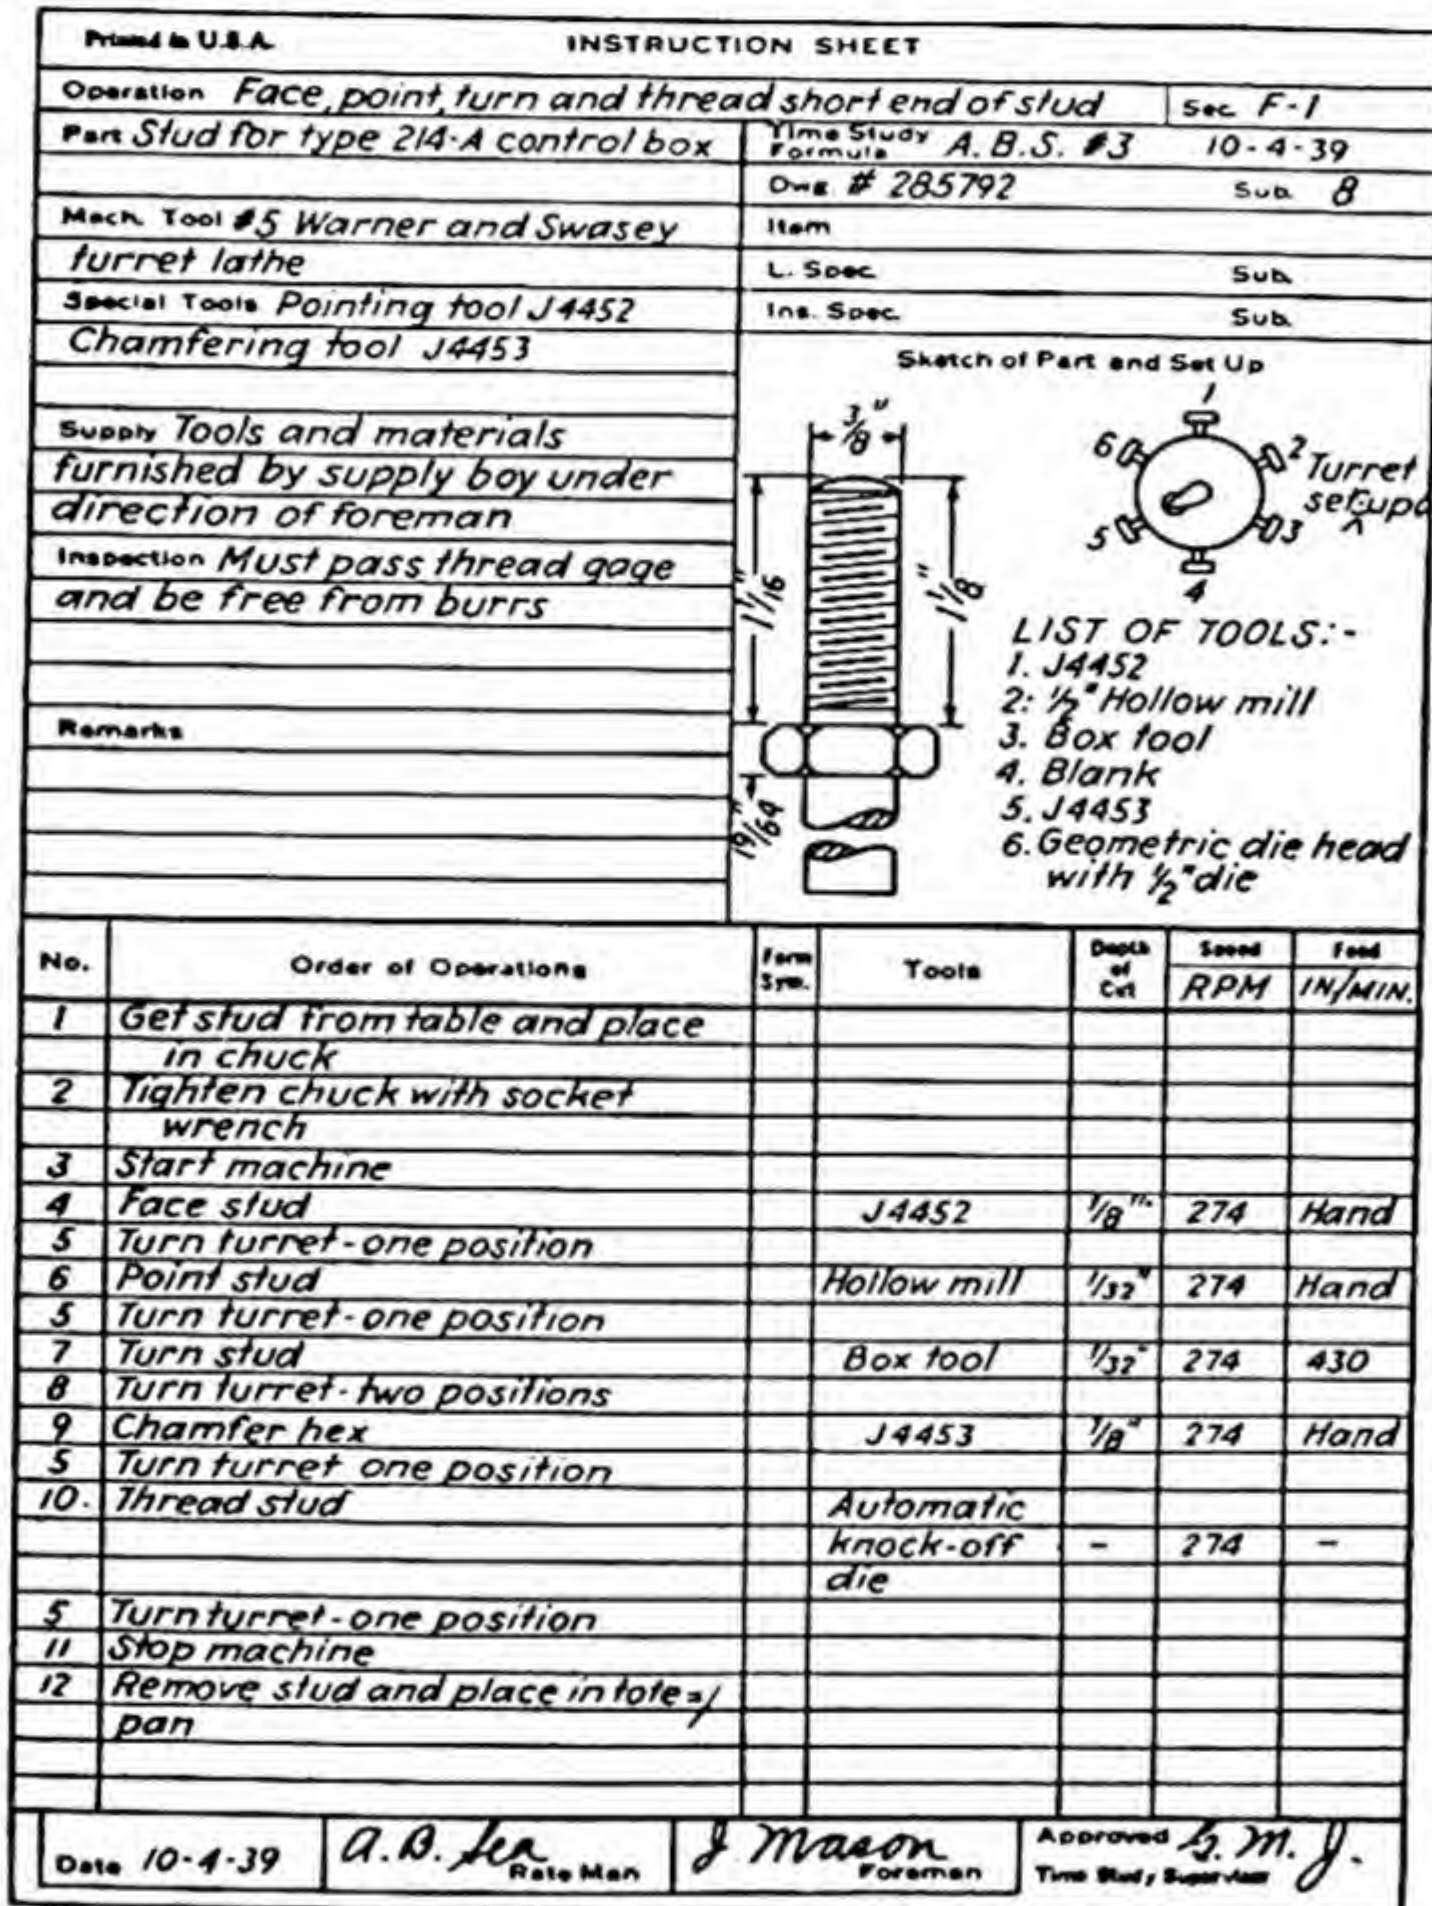 Printed in U.S.A. INSTRUCTION SHEET
Operation Face, point, turn and thread short end of stud Sec. F-1
Part Stud for type 214-A control box Time Study Formula A.B.S. #3 10-4-39
Dwg. # 285792 Sub. 8
Mach. Tool #5 Warner and Swasey Item
turret lathe L. Spec. Sub.
Special Tools Pointing tool J4452 Ins. Spec. Sub.
Chamfering tool J4453
Supply Tools and materials
furnished by supply boy under
direction of foreman
Inspection Must pass thread gage
and be free from burrs
Remarks
Sketch of Part and Set Up
3/8"
1 1/16"
1 1/8"
19/64"
1
2
3
4
5
6
Turret
LIST OF TOOLS:-
1. J4452
2: 1/2" Hollow mill
3. Box tool
4. Blank
5. J4453
6. Geometric die head
with 1/2" die
No. Order of Operations Form Sym. Tools Depth of Cut Speed RPM Feed IN/MIN.
1 Get stud from table and place
in chuck
2 Tighten chuck with socket
wrench
3 Start machine
4 Face stud J4452 1/8" 274 Hand
5 Turn turret-one position
6 Point stud Hollow mill 1/32" 274 Hand
5 Turn turret-one position
7 Turn stud Box tool 1/32" 274 430
8 Turn turret-two positions
9 Chamfer hex J4453 1/8" 274 Hand
5 Turn turret one position
10. Thread stud Automatic
knock-off - 274 -
die
5 Turn turret-one position
11 Stop machine
12 Remove stud and place in tote=/
pan
Date 10-4-39 A.B. Sea Rate Man J. Mason Foreman Approved G.M.J.
Time Study Supervisor